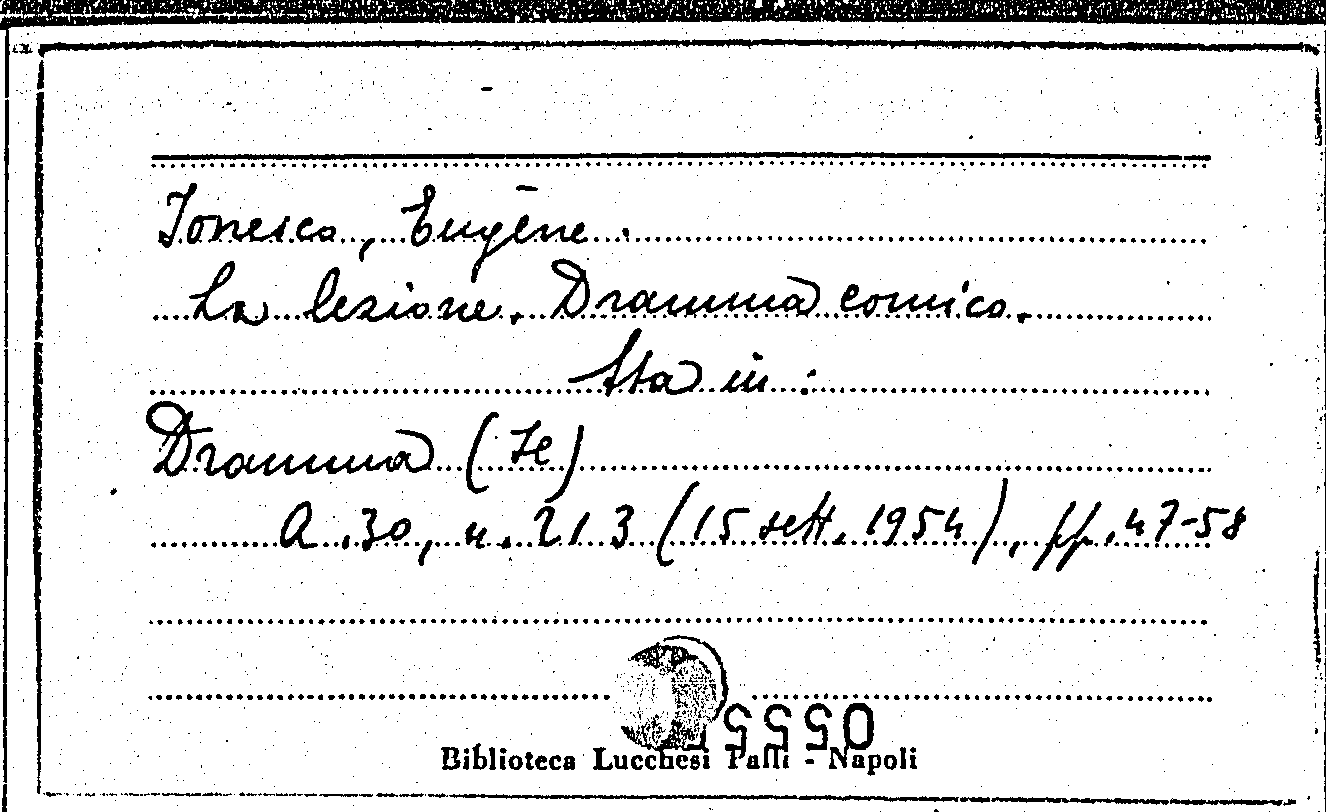 Ionesco, Eugène.
La lezione. Dramma comico.
Sta in:
Dramma (Il)
A. 30, n. 213 (15 sett. 1954), pp. 47-58
Biblioteca Lucchesi Palli - Napoli